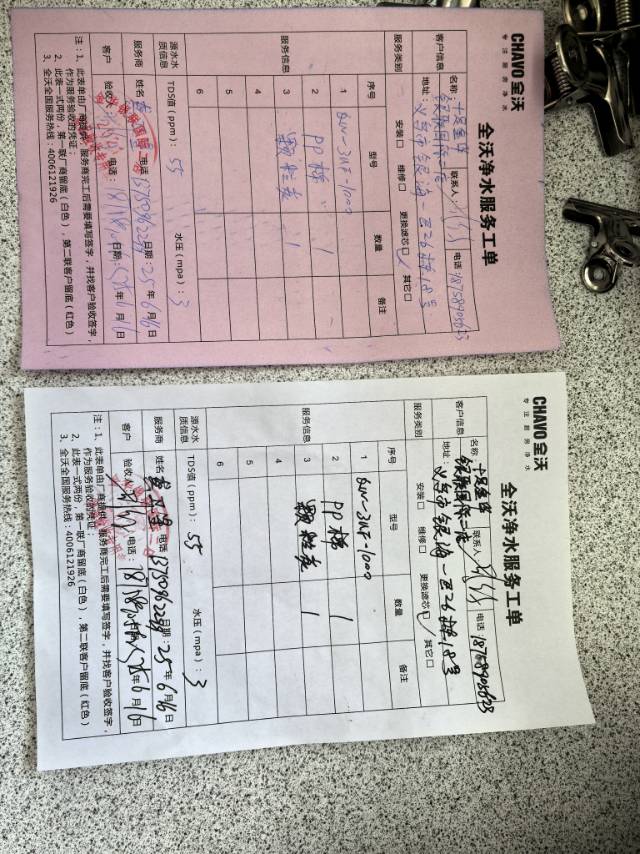 CHAVO 全沃
专注厨房净水
全沃净水服务工单
客户信息
名称：十足金店
联系人：
电话 18758905623
银泰国际二店
地址：义乌市银海一区26栋18号
服务类别
安装□ 维修□ 更换滤芯☑ 其它□
服务信息
序号 型号 数量 备注
1 QUV-3UF-1000
2 PP棉 1
3 颗粒炭 1
4
5
6
源水水质信息
TDS值（ppm）：55 水压（mpa）：3
服务商 姓名 电话 日期：25年6月16日
客户 验收人 电话： 日期：25年6月16日
注：1、此表单由厂商提供，服务商完工后需要填写签字，并找客户验收签字，
作为服务验收的凭证；
2、此表一式两份，第一联厂商留底（白色），第二联客户留底（红色）
3、全沃全国服务热线：4006121926
CHAVO 全沃
专注厨房净水
全沃净水服务工单
客户信息
名称：十足金店
联系人
电话 18758905623
银泰国际二店
地址：义乌市银海一区26栋18号
服务类别
安装□ 维修□ 更换滤芯☑ 其它□
服务信息
序号 型号 数量 备注
1 QUV-3UF-1000
2 PP棉 1
3 颗粒炭 1
4
5
6
源水水质信息
TDS值（ppm）：55 水压（mpa）：3
服务商 姓名 电话 日期：25年6月16日
客户 验收人 电话： 25年6月16日
注：1、此表单由厂商提供，服务商完工后需要填写签字，并找客户验收签字，
作为服务验收的凭证；
2、此表一式两份，第一联厂商留底（白色），第二联客户留底（红色）
3、全沃全国服务热线：4006121926